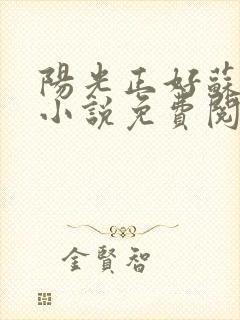 陽光正好蘇
小說免費閱
金賢智